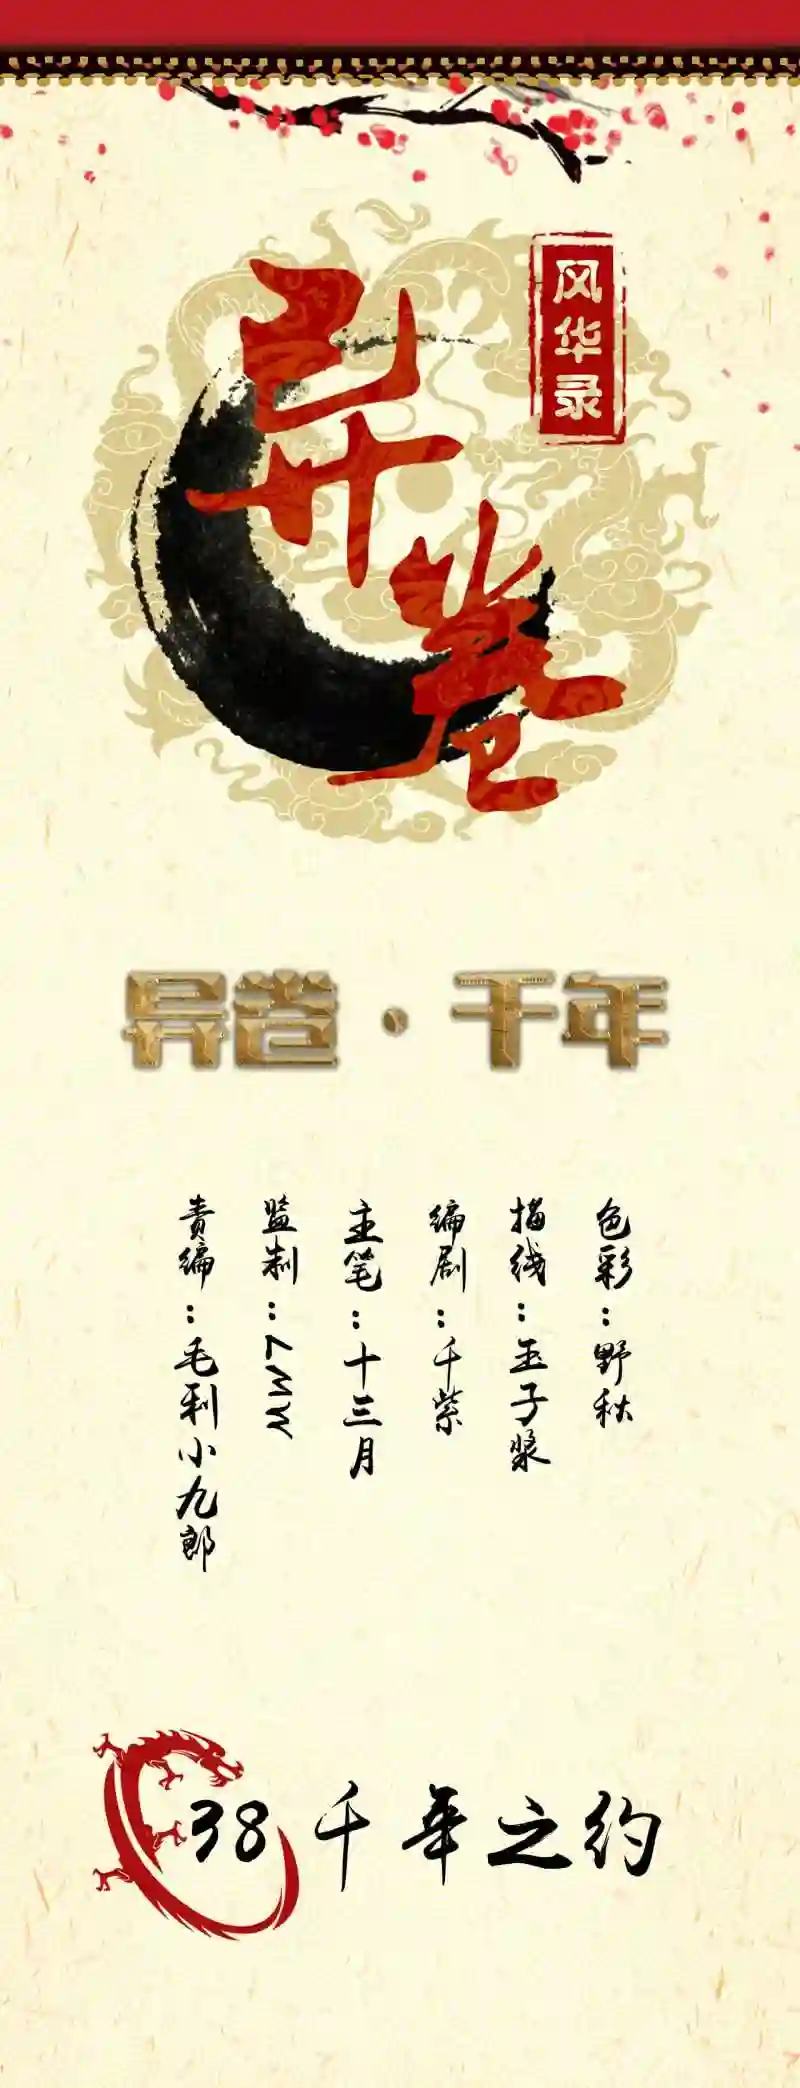 异卷
风华录
异卷·千年
色彩：野秋
描线：玉子浆
编剧：千紫
主笔：十三月
监制：ZMW
责编：毛利小九郎
38 千年之约